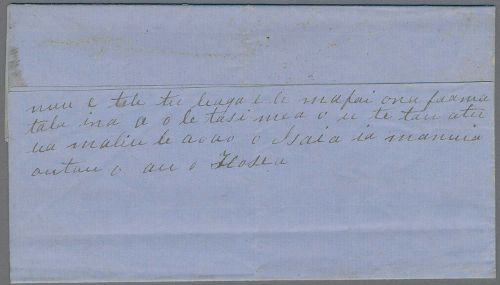 nuu e tele tu luaga e le mafai ona faama
tala ina a o le tasi mea o u te tau atu
ua maliu le aoao o Isaia ia manuia
outou o au o Hosea